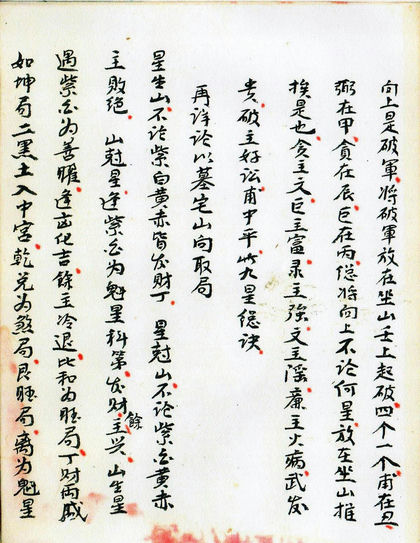 向上是破軍將破軍放在坐山壬上起破四个一个甫在丑
弼在甲貪在辰巨在丙總將向上不論何星放在坐山推
挨是也貪主文巨主富彔主強文主淫廉主火病武发
贵破主好訟甫中平此九星總诀
再详论以墓宅山向取局
星生山不论紫白黄赤皆发财丁 星尅山不论紫白黄赤
主败绝 山尅星逢紫白为魁星科第发财餘主兴 山生星
遇紫白为善曜逢 化吉餘主冷退比和为旺局丁财两盛
如坤局二黑土入中宫乾兑为煞局艮旺局离为魁星